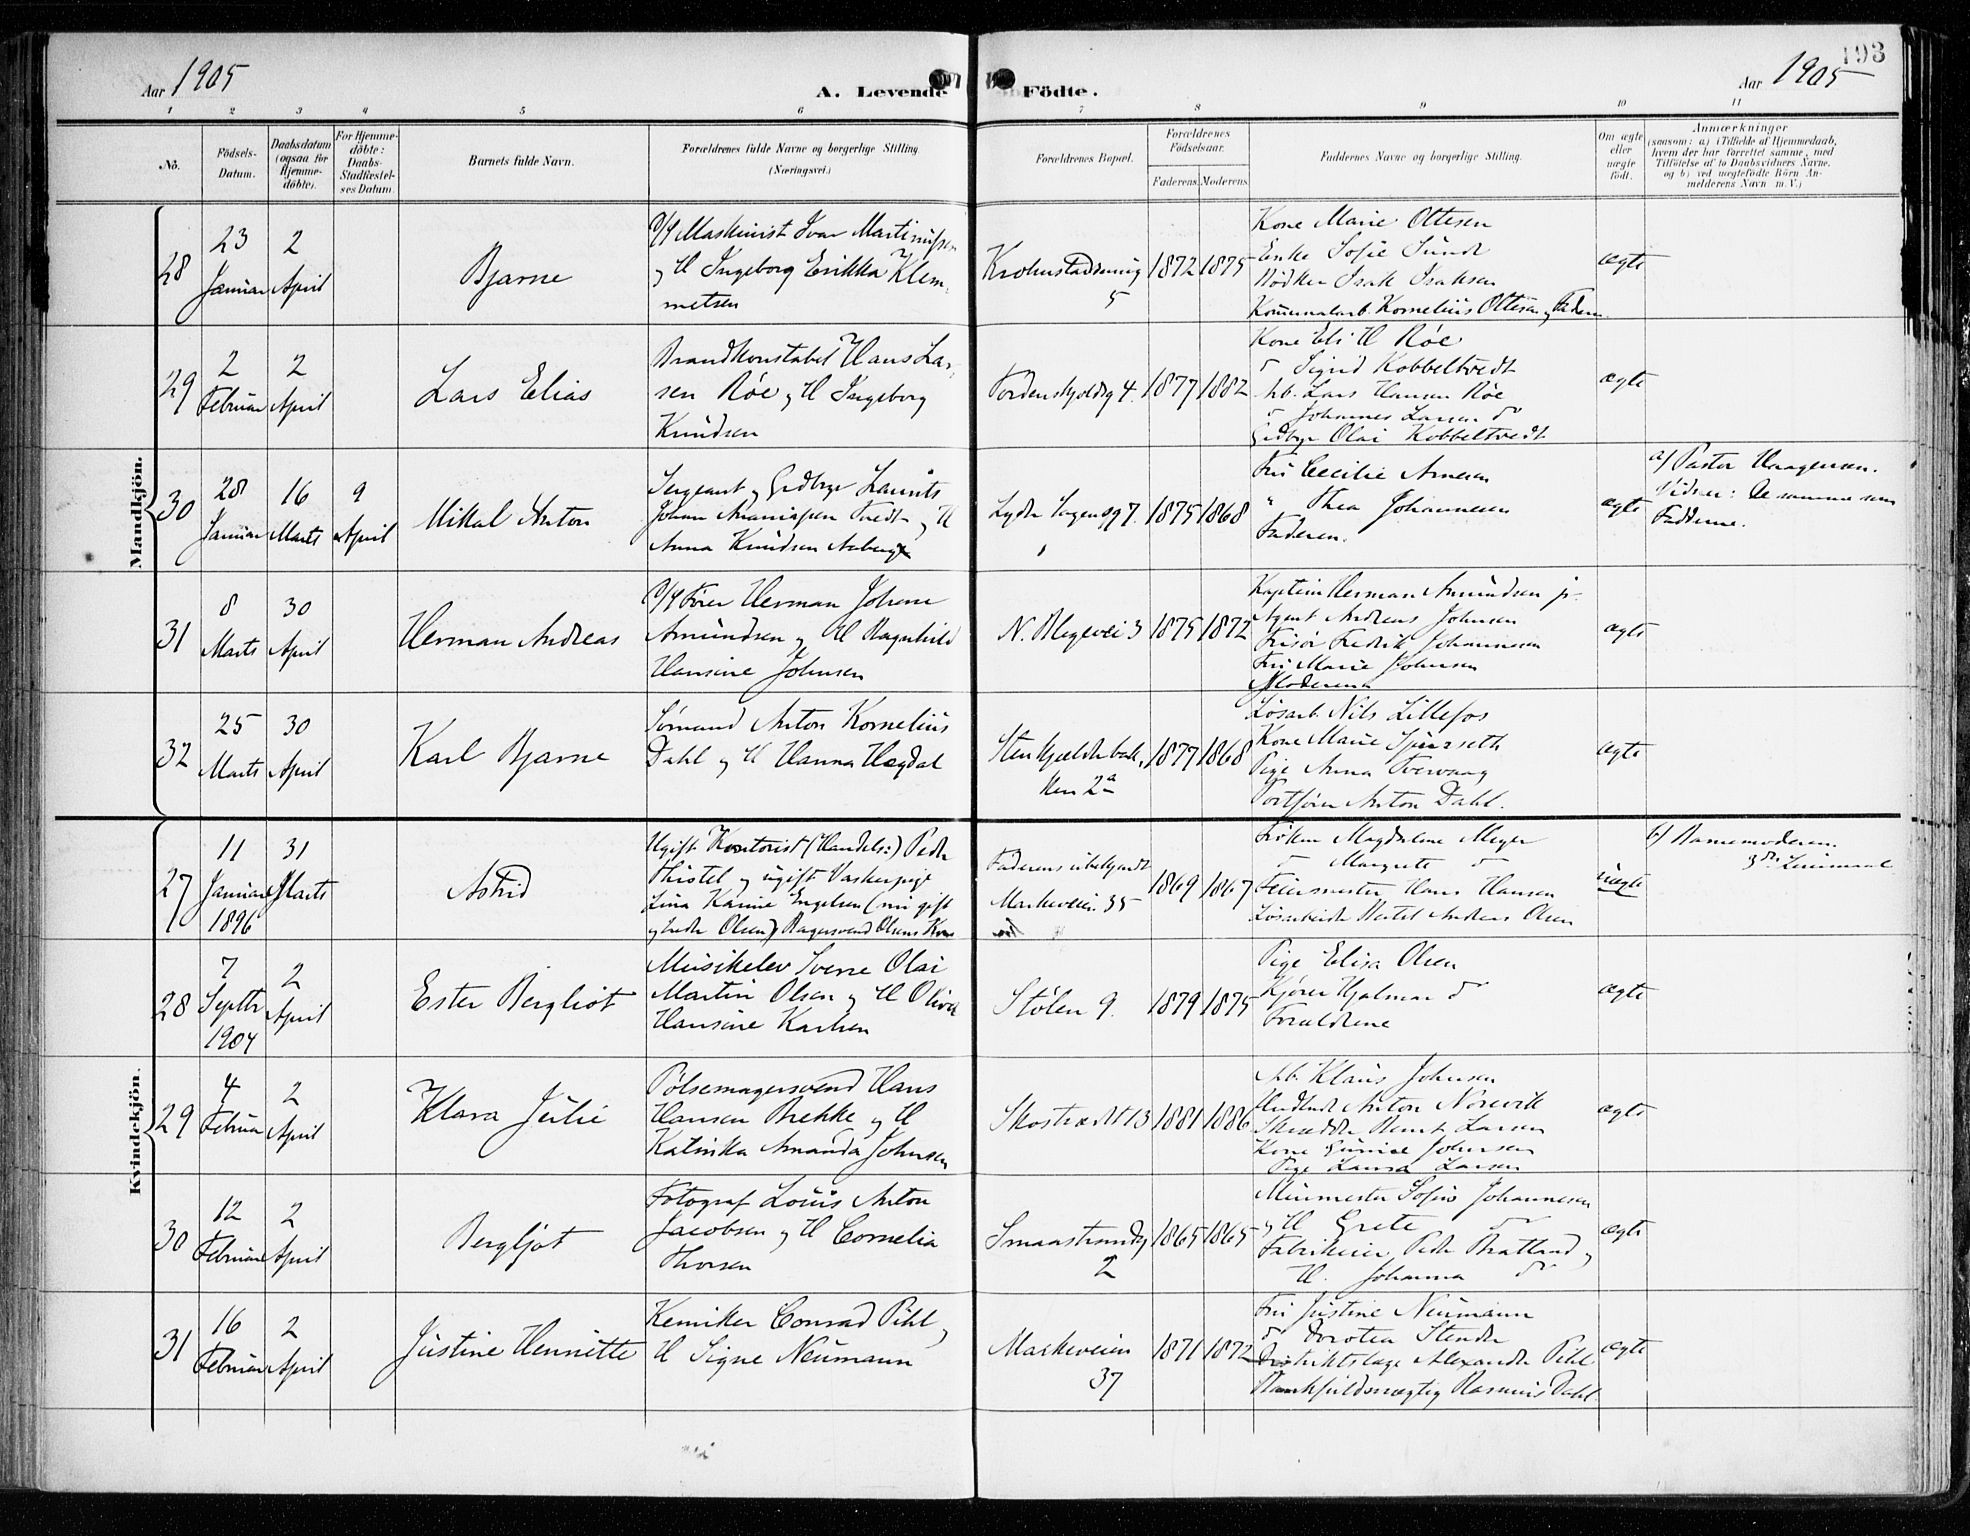 193
Aar 1905
A. Levende Födte.
Aar 1905
1 2 3 4 5 6 7 8 9 10 11
No.
Födsels-
Datum.
Daabsdatum
(ogsaa for
Hjemme-
döbte).
For Hjemme-
döbte:
Daabs-
Stadfæstel-
ses Datum.
Barnets fulde Navn.
Forældrenes fulde Navne og borgerlige Stilling.
(Næringsvei.)
Forældrenes Bopæl.
Forældrenes
Födselsaar.
Faderens Moderens
Faddernes Navne og borgerlige Stilling.
Om ægte
eller
uægte
födt.
Anmærkninger
(saasom: a) i Tilfælde af Hjemmedaab,
hvem der har forrettet samme, med
Tilföielse af to Daabsvidners Navne,
og b) ved uægtefödte Börn An-
melderens Navn m. V.)
Mandkjön.
28
23
Januar
2
April
Bjarne
Maskinist Ivar Martinussen
og H Ingeborg Erikka Klem-
metsen
5
1872 1875
Kone Marie Ottesen
Enke Sofie Sundt
Bødker Isak Isaksen
Kommunalarb. Kornelius Ottesen, Faderen
ægte
29
2
Februar
2
April
Lars Elias
Brandkonstabel Hans Lar-
sen Røe og H Ingeborg
Knudsen
Tordenskjoldsg 4.
1877 1882
Kone Eli H Røe
" Sigrid Kobbeltvedt
Arb. Lars Hansen Røe
" Johannes Larsen do
Grdbr Olai Kobbeltvedt
ægte
30
28
Januar
16
Marts
9
April
Mikal Anton
Sergeant og Grdbr Laurits
Johan Ananiassen Tvedt og H
Anna Knudsen
Lyder Sagensg 7.
1875 1868
Fru Cecilie Arnesen
" Thea Johannesen
Faderen.
ægte
a) Pastor Haagensen.
Vidner: De samme som
Fadderne.
31
8
Marts
30
April
Herman Andreas
Fører Herman Johan
Amundsen og H Ragnhild
Hansine Johnsen
N. Blegevei 3
1875 1872
Kaptein Herman Amundsen jr.
Agent Andreas Johnsen
Frisør Fredrik Johannesen
Fru Marie Johnsen
Moderen
ægte
32
25
Marts
30
April
Karl Bjarne
Sømand Anton Kornelius
Dahl og H Hanna Hegdal
Stenkjælderbak-
ken 2a
1877 1868
Løsarb. Nils Lillefos
Kone Marie
Pige Anna Tverraag
Anton Dahl.
ægte
Kvindekjön.
27
11
Januar
1896
31
Marts
Astrid
Ugift Kontorist (Handels:) Peder
Thistel og ugift Vaskerpige
Lina Karine Engelsen (nu gift
Olsen) Bagersvend Olsens Kone
Faderens ubekjendt
Markeveien 35
1869 1867
Frøken Magdalene Meyer
" Margrete do
Feiermester Hans Hansen
Løsarbeider Bertel Andreas Olsen
uægte
b) Barnemoderen.
28
7
Septbr
1904
2
April
Ester Bergliot
Musikelev Sverre Olai
Martin Olsen og H Oliva
Hansine Karlsen
Stølen 9.
1879 1875
Pige Elisa Olsen
Kjører Hjalmar do
Forældrene
ægte
29
4
Februar
2
April
Klara Julie
Pølsemagersvend Hans
Hansen Brekke og H
Katinka Amanda Johnsen
Skostrædet 13
1881 1886
Arb. Klaus Johnsen
Anton Norevik
Skrædder Bernt Larsen
Kone Gunice Johnsen
Pige Laura Larsen
ægte
30
12
Februar
2
April
Bergljot
Fotograf Louis Anton
Jacobsen og H Cornelia
Thorsen
Smaastrandg
2
1865 1865
Murmester Sofus Johannesen
og H Grete do
Fabrikeier Peder Bratland og
H. Johanna do
ægte
31
16
Februar
2
April
Justine Henriette
Kemiker Conrad Pihl og
H Signe Neumann
Markeveien
37
1871 1872
Fru Justine Neumann
do Dorotea Stender
Distriktslæge Alexander Pihl
Bankfuldmægtig Rasmus Dahl.
ægte